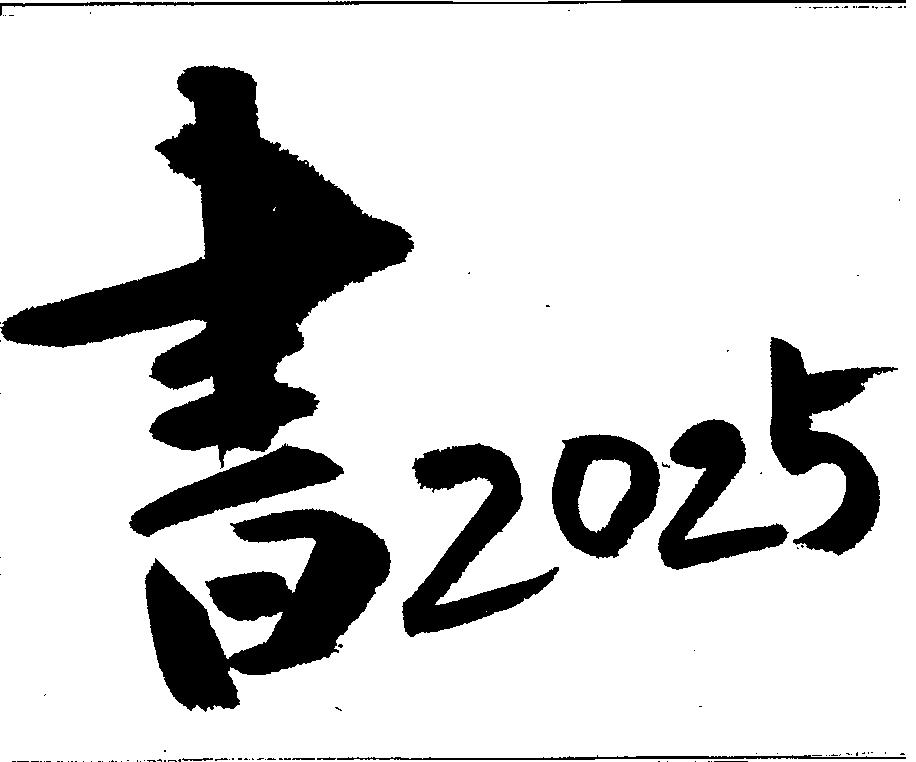 書2025